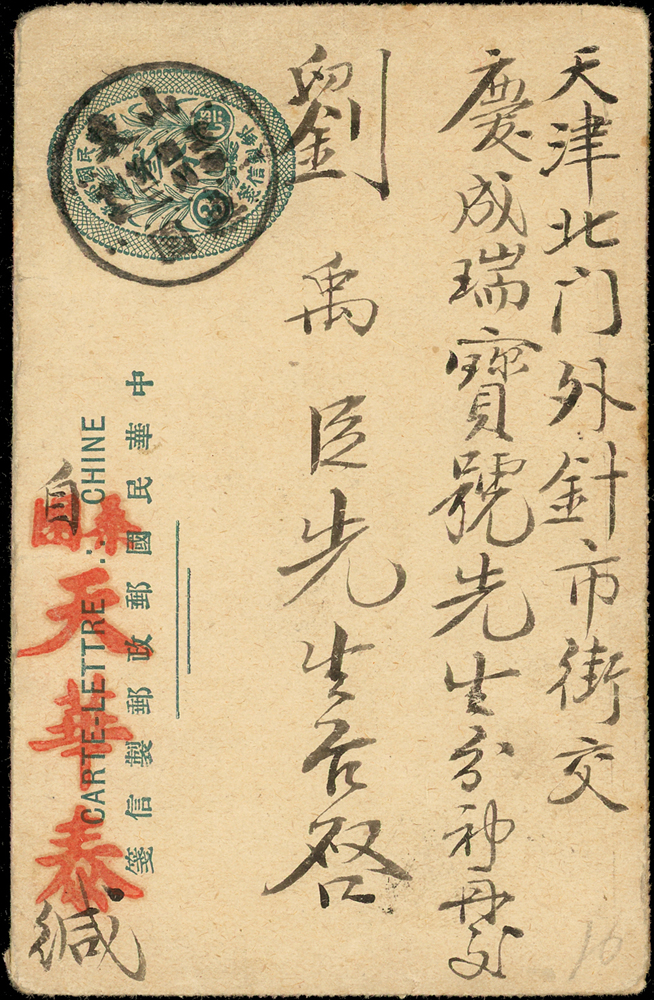 天津北门外針市街交
慶成瑞寶號先生分神再交
劉禹臣先生台啓
中華民國郵政郵製信箋
CARTE-LETTRE ∴ CHINE
自
天華泰
緘
16